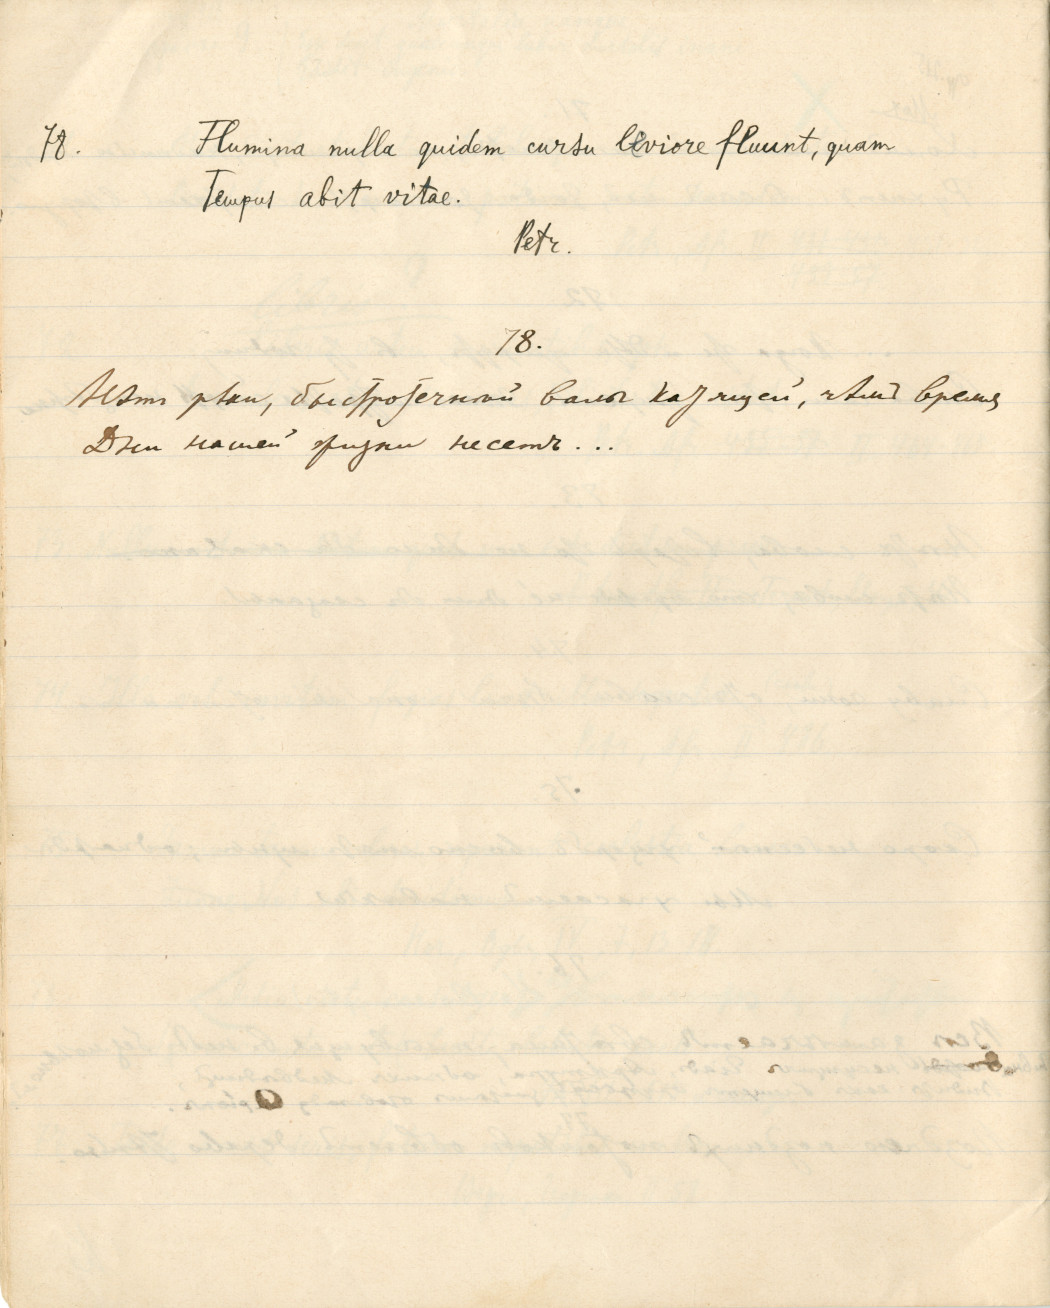 78. Flumina nulla quidem cursu leviore fluunt, quam
Tempus abit vitae.
Petr.
78.
Нѣтъ рѣки, быстротечной валы катящей, чѣмъ время
Дни нашей жизни несетъ...